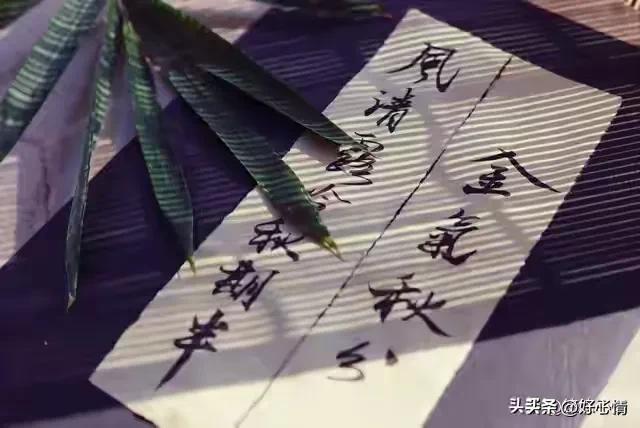 金氣秋分
風清露冷秋期半
头条 @好心情